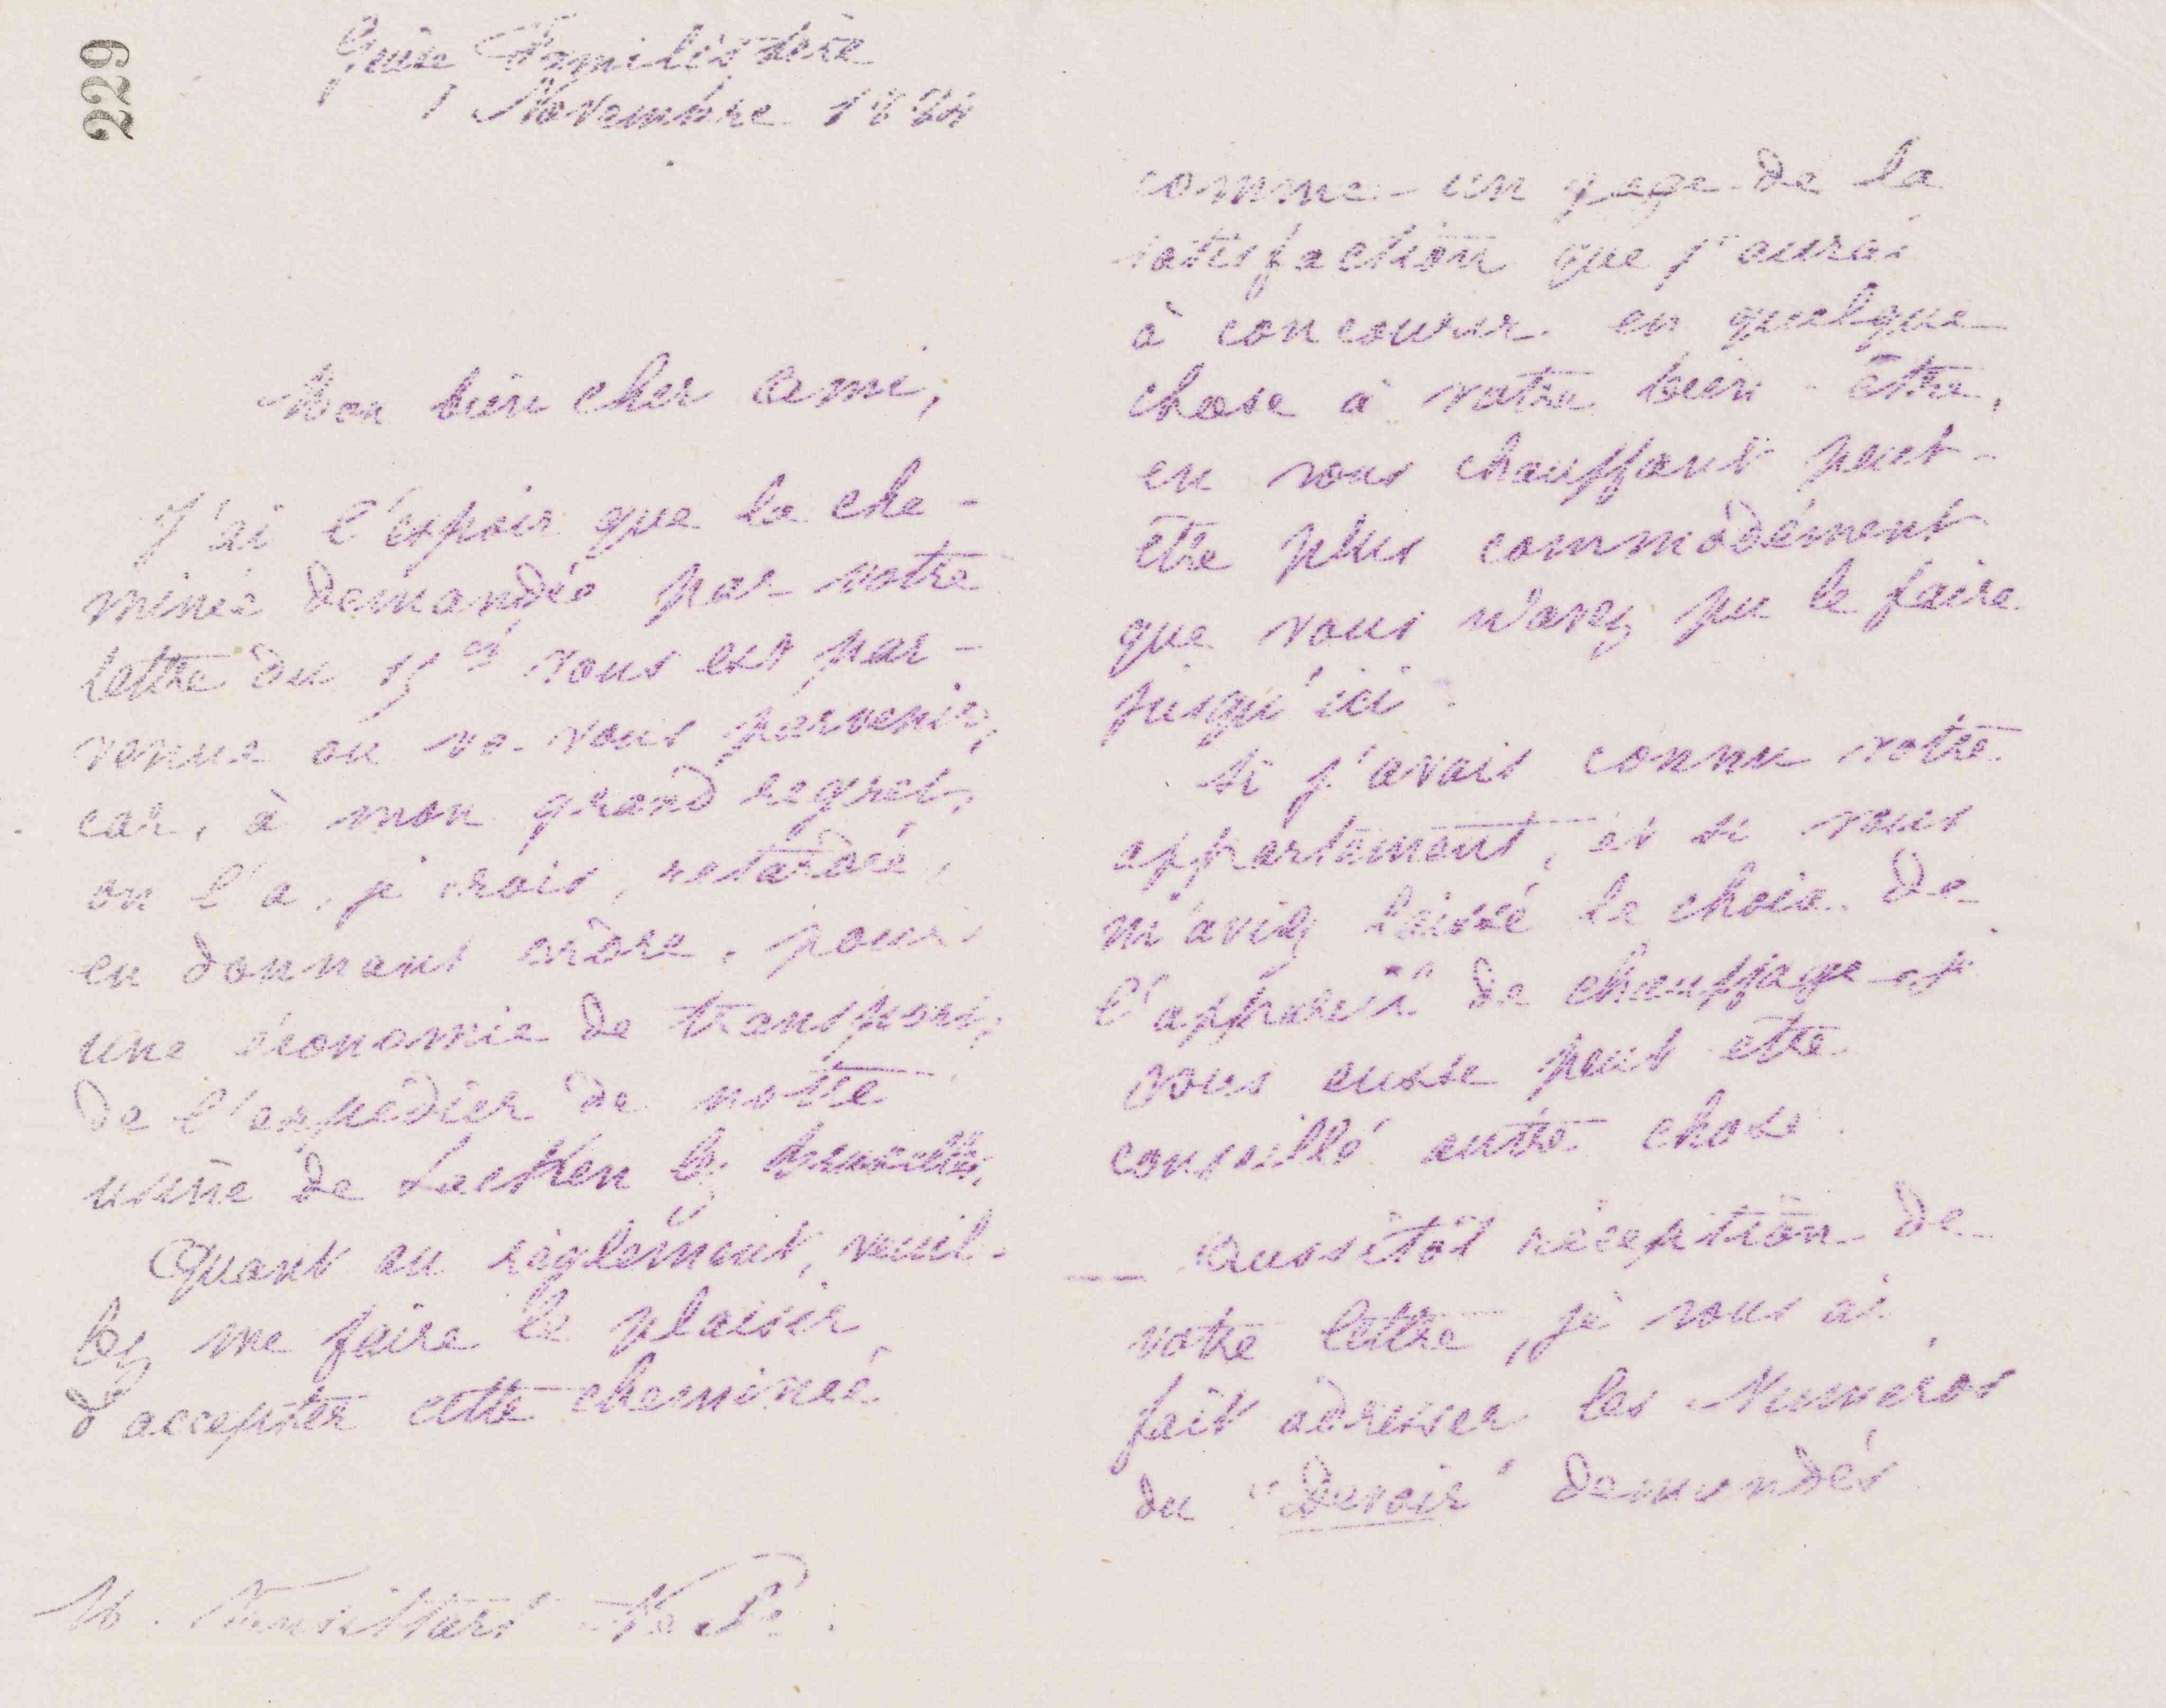 229
Guise Familistère
1 Novembre 188
Mon bien cher ami,
J'ai l'espoir que la che-
minée demandée par votre
lettre du 15 vous est par-
venue ou va vous parvenir,
car, à mon grand regret,
on l'a, je crois, retardée,
en donnant ordre, pour
une économie de transport,
de l'expédier de notre
usine de Laeken lz bruxelles.
Quant au règlement, veuil-
lez me faire le plaisir
d'accepter cette cheminée
M.
comme un gage de la
satisfaction que j'aurai
à concourir en quelque
chose à votre bien-être,
en vous chauffant peut-
être plus commodément
que vous n'avez pu le faire
jusqu'ici.
Si j'avais connu votre
appartement, et si vous
m'aviez laissé le choix de
l'appareil de chauffage je
vous eusse peut être
conseillé autre chose.
— Aussitôt réception de
votre lettre, je vous ai
fait adresser les Numéros
du "Devoir" demandés